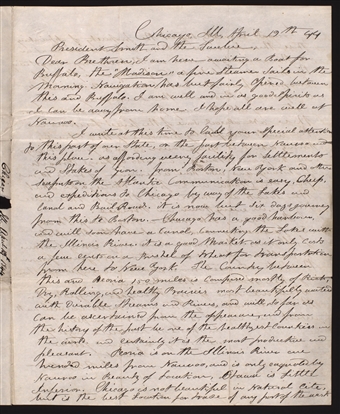 Chicago, Ill, April 19th 44
President Smith and the Twelve.
Dear Brethren, I am here awaiting a Boat for
Buffalo, the "Madison" a fine Steamer Sails in the
Morning. Navigation has but fairly Opened between
this and Buffalo. I am well and in as good Spirits as
I can be away from home I hope all are well at
Nauvoo.
I write at this time to call your special attention
to this part of our State, or the part between Nauvoo and
this place. as affording every facility for Settlements
and Stakes of Zion. from Boston, New York and other
Seaports on the Atlantic Communication is easy, cheap
and expeditious to Chicago by way of the Lakes and
Canal and Rail Road. it is now but six days journey
from this to Boston. Chicago has a good harbour,
and will soon have a Canal, connecting the Lakes with
the Illinois River. it is a good Market as it only costs
a few cents a Bushel of Wheat for transportation
from here to New York. The Country between
this and Peoria 150 miles is composed mostly of Rich,
Dry, Rolling, and healthy Prairies most beautifully watered
with durable Streams and Rivers, and with so far as
can be ascertained from the appearance, and from
the history of the past be one of the healthiest countries in
the world. and certainly it is the most productive and
pleasant. Peoria is on the Illinois River one
hundred miles from Nauvoo, and is only exceeded by
Nauvoo in Beauty of location, is little
inferior. Chicago is not beautiful in Natural Site,
but is the best location for trade of any part of the west